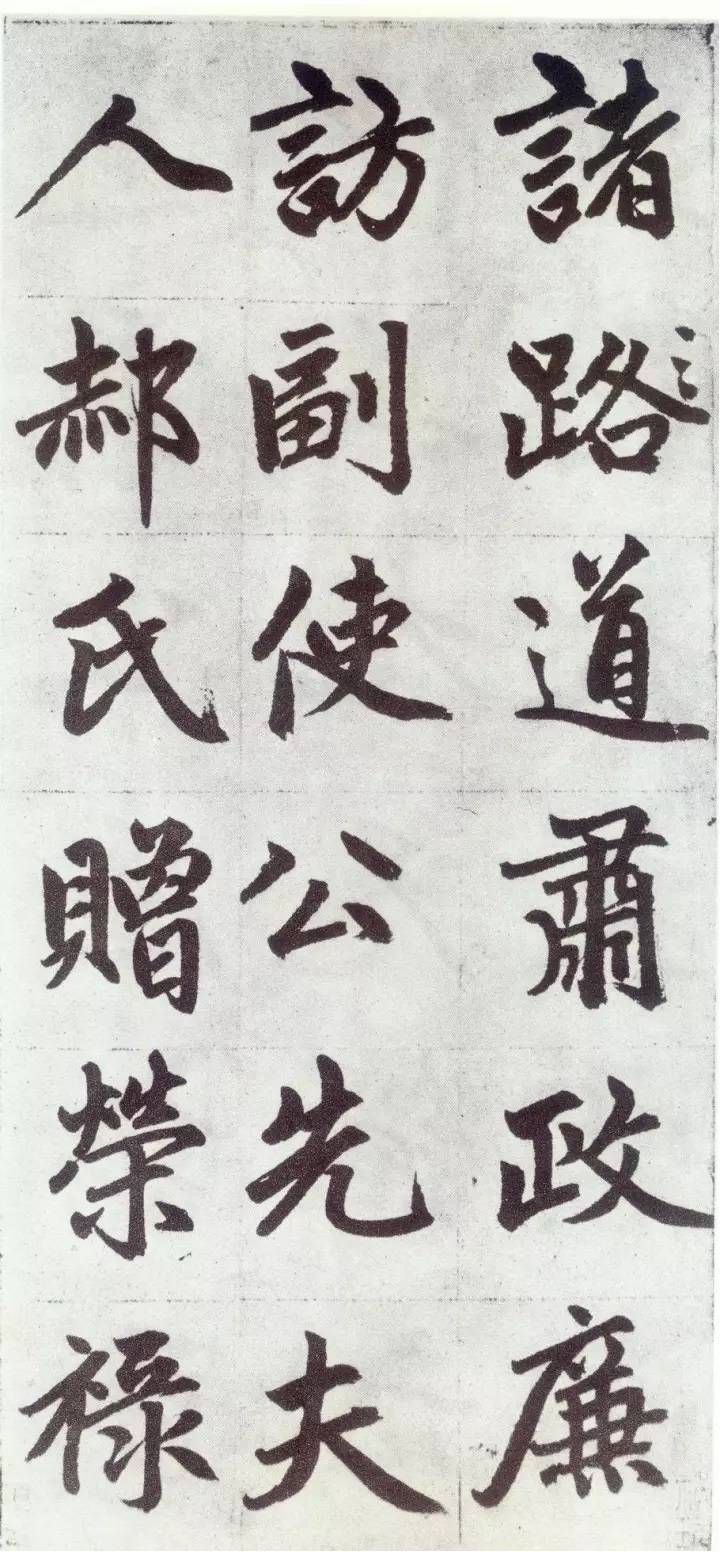 諸路道肅政廉
訪副使公先夫
人郝氏贈榮祿